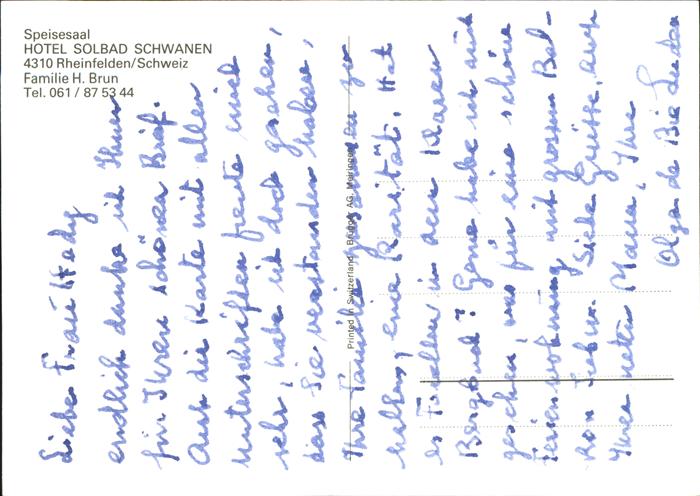 Speisesaal
HOTEL SOLBAD SCHWANEN
4310 Rheinfelden/Schweiz
Familie H. Brun
Tel. 061 / 87 53 44
Printed in Switzerland Brügger AG, Meiringen
Liebe Frau Hedy
endlich danke ich Ihnen
für Ihren schönen Brief.
Auch die Karte mit allen
Unterschriften freute mich
sehr, habe ich doch gesehen,
dass Sie verstanden haben,
Ihre Familie zusammen zu
halten, eine Rarität. Hat
es Familler in den
Bergbad? Gerne habe ich auch
gesehen, was für eine schöne
Ferienwohnung mit grossem Bal-
kon Liebe Grüsse, auch
Ihrem Mann, Ihre
Olga de Bie Luden